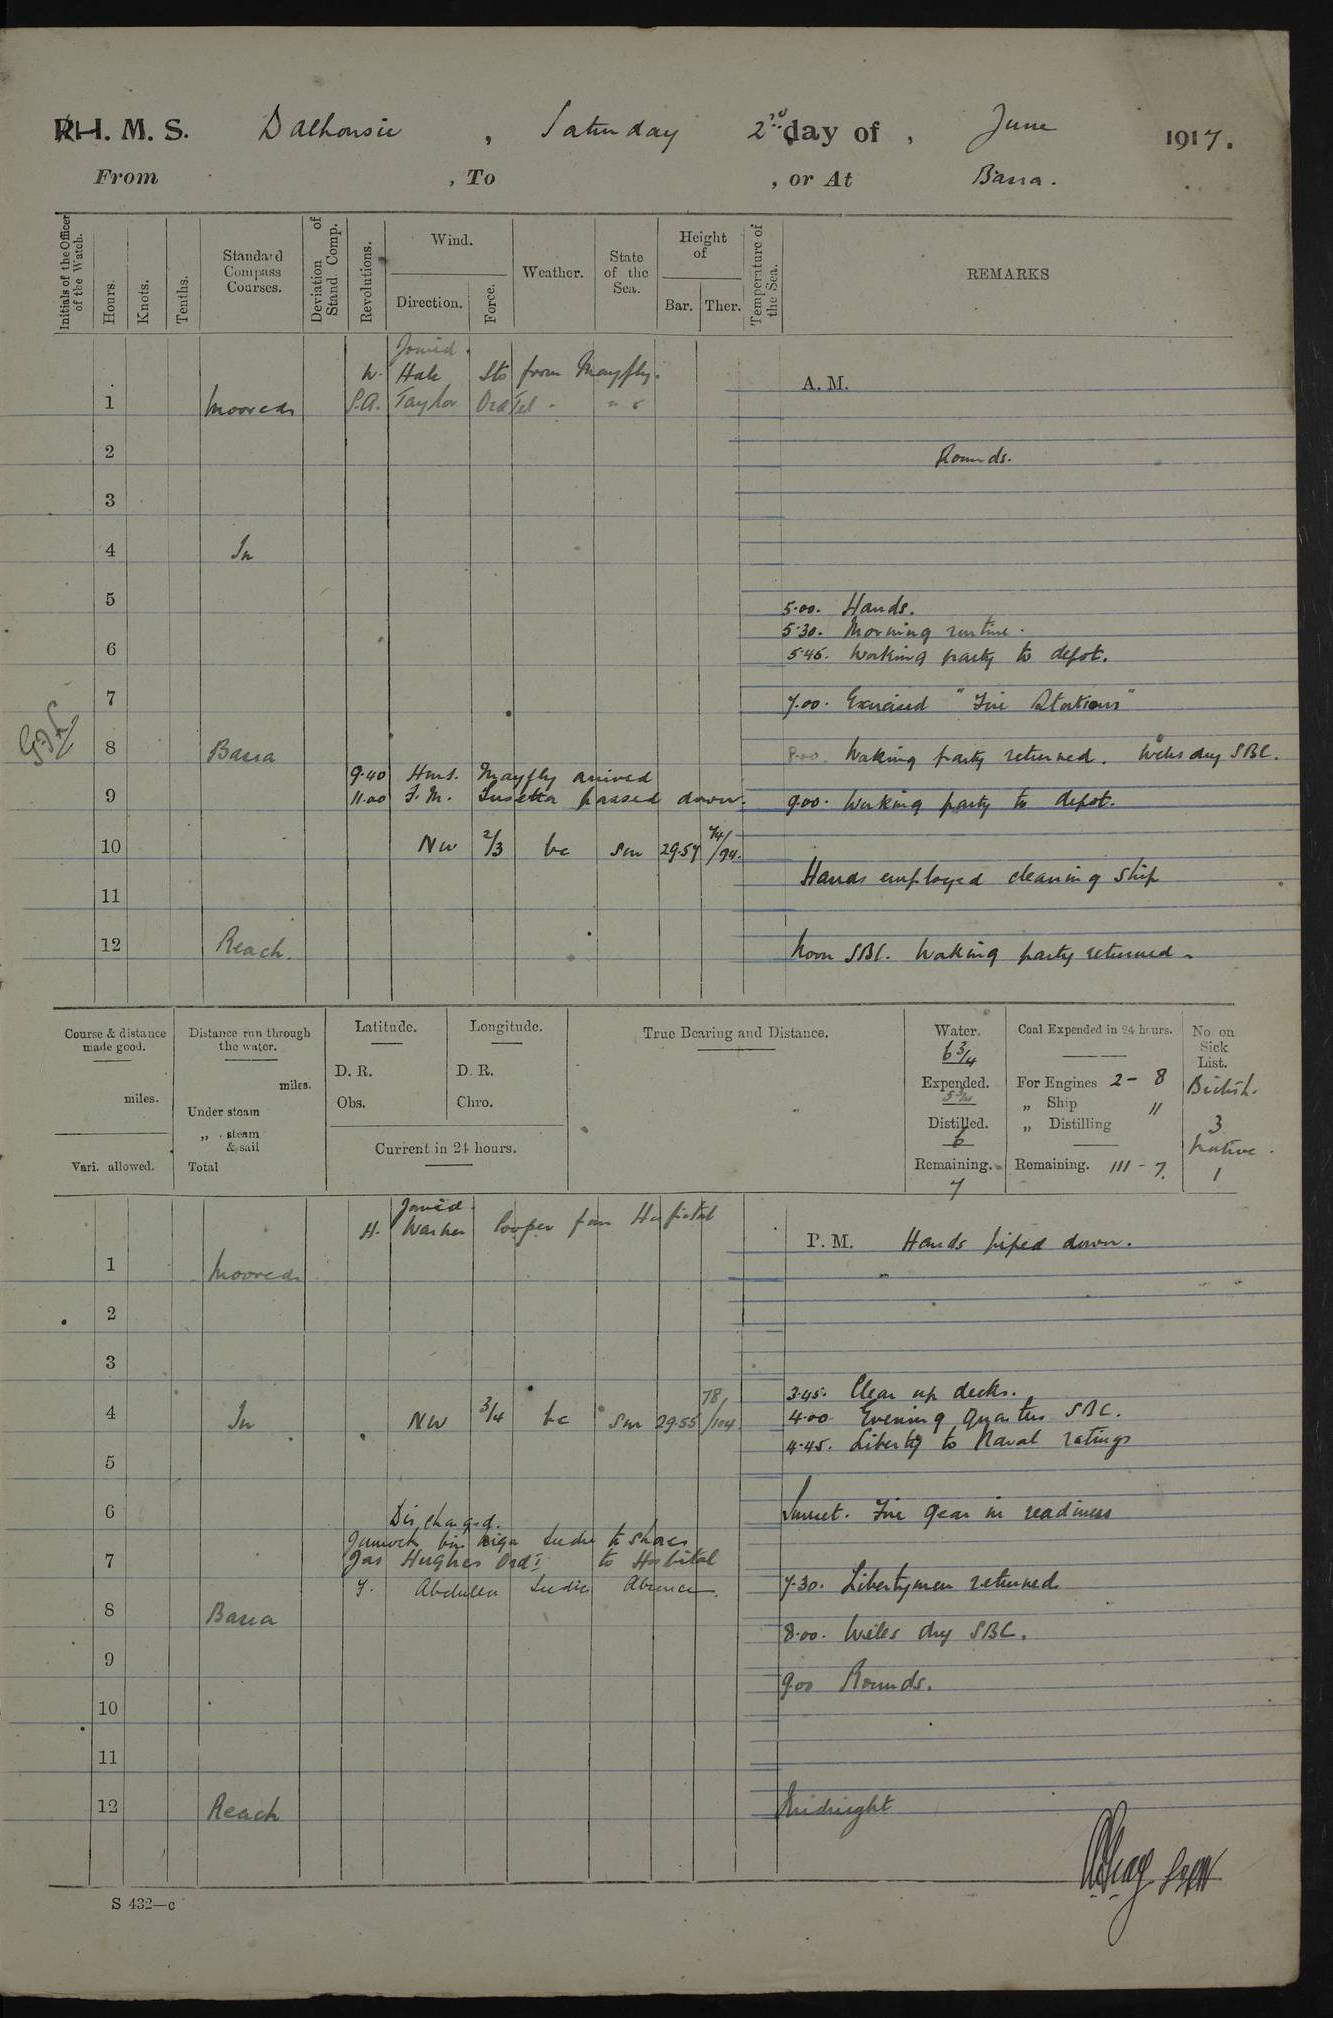 R.I.M.S. Dalhousie, Saturday 2nd day of, June 1917.
From , To , or At Basra.
Initials of the Officer of the Watch.
Hours.
Knots.
Tenths.
Standard Compass Courses.
Deviation of Stand Comp.
Revolutions.
Wind.
Direction.
Force.
Weather.
State of the Sea.
Height of
Bar.
Ther.
Temperature of the Sea.
REMARKS
Joined.
W. Hale Sto from Mayfly.
A. M.
1 Moored P.A. Taylor Ord Tel " " "
2 Rounds.
3
4 In
5 5.00. Hands.
5.30. Morning routine.
6 5.45. Working party to depot.
7 7.00. Exercised "Fire Stations"
8 Basra 8.00. Working party returned. Wells dry SBC.
9.40 H.M.S. Mayfly arrived
9 11.00 S.M. passed down. 9.00. Working party to depot.
10 NW 2/3 bc Sm 29.57 74/94.
Hands employed cleaning ship
11
12 Reach. Noon SBC. Working party returned.
Course & distance made good.
miles.
Vari. allowed.
Distance run through the water.
miles.
Under steam
„ steam & sail
Total
Latitude.
D. R.
Obs.
Longitude.
D. R.
Chro.
Current in 24 hours.
True Bearing and Distance.
Water.
6 3/4
Expended.
Distilled.
6
Remaining.
7
Coal Expended in 24 hours.
For Engines 2 - 8
„ Ship "
„ Distilling
Remaining. 111 - 7.
No. on Sick List.
British.
3
Native.
1
Joined
H. Cooper from Hospital
P. M. Hands piped down.
1 Moored
2
3
3.45. Clear up decks.
4 In NW 3/4 bc Sm 29.55 78/104 4.00 Evening Quarters SBC.
4.45. Liberty to Naval ratings
5
6 Sunset. Fire gear in readiness
Discharged.
bin to shore
7 Jas Hughes Ord to Hospital
Y. Abdulla Seedie Absence 7.30. Libertymen returned
8 Basra
8.00. Wells dry SBC.
9
9.00 Rounds.
10
11
12 Reach Midnight
S 432—c